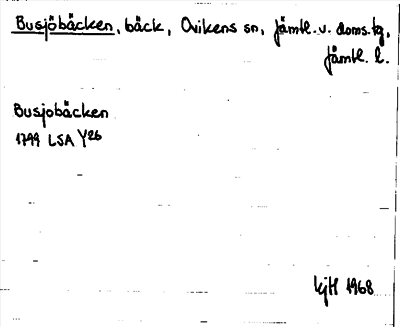 Busjöbäcken, bäck, Ovikens sn, Jämtl. v. doms.tg,
Jämtl. l.
Busjobäcken
1799 LSA Y26
KjH 1968